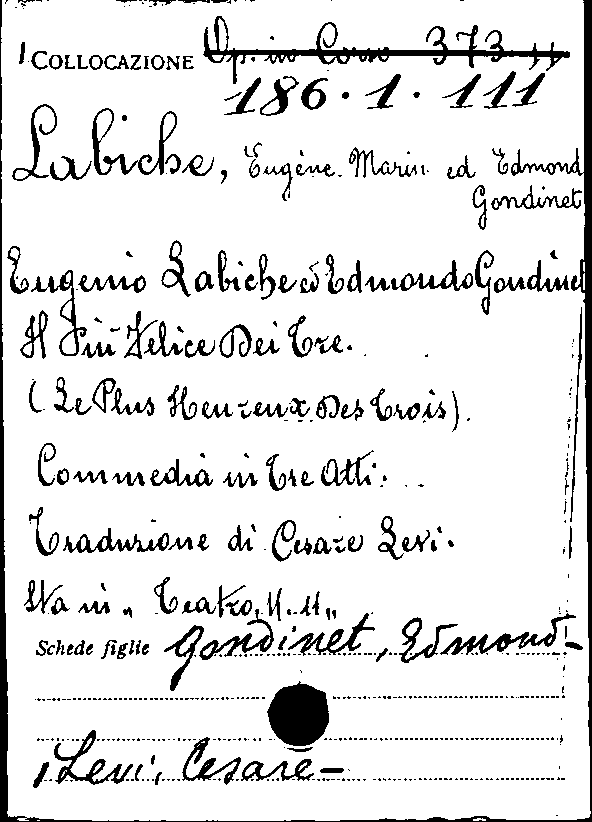 COLLOCAZIONE Op. in Corso 373.11
186.1.111
Labiche, Eugène Marin ed Edmond
Gondinet
Eugenio Labiche ed Edmondo Gondinet
Il Più Felice Dei Tre.
(Le Plus Heureux Des Trois).
Commedia in Tre Atti.
Traduzione di Cesare Levi.
Sta in „ Teatro,
Schede figlie Gondinet, Edmond-
Levi, Cesare-